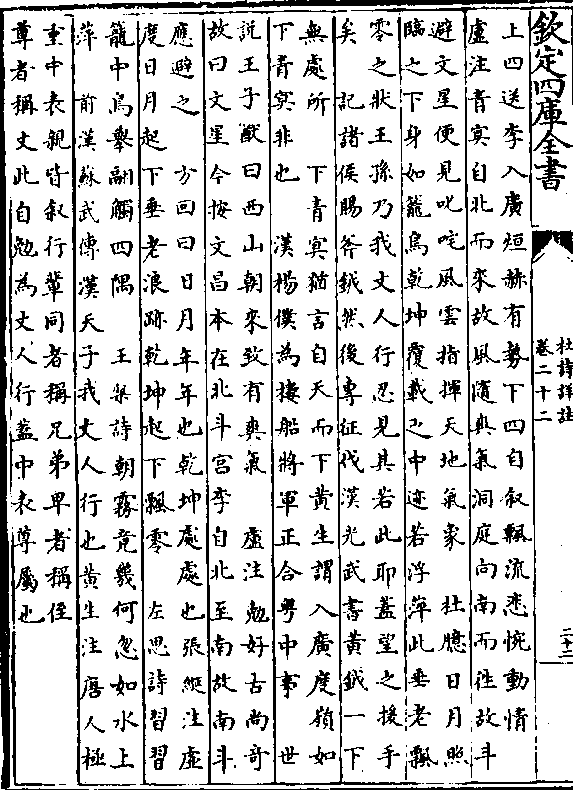 欽定四庫全書
杜詩詳註
卷二十二
二十二
上四送李入廣烜赫有勢下四自叙飄流悲惋動情
盧注青冥自北而來故風隨爽氣洞庭向南而往故斗
避文星便見叱咤風雲指揮天地氣象　杜臆日月照
臨之下身如籠鳥乾坤覆載之中迹若浮萍此垂老飄
零之狀王孫乃我丈人行忍見其若此耶蓋望之援手
矣　記諸侯賜斧鉞然後專征伐漢光武書黄鉞一下
無處所　下青冥猶言自天而下黄生謂入廣度嶺如
下青冥非也　漢楊僕為樓船將軍正合粤中事　世
説王子猷曰西山朝來致有爽氣　盧注勉好古尚奇
故曰文星今按文昌本在北斗宫李自北至南故南斗
應避之　方回曰日月年年也乾坤處處也張綖注虚
度日月起下垂老浪跡乾坤起下飄零　左思詩習習
籠中鳥舉翮觸四隅　王粲詩朝霧竟幾何忽如水上
萍　前漢蘇武傳漢天子我丈人行也黄生注唐人極
重中表親皆叙行輩同者稱兄弟卑者稱侄
尊者稱丈此自勉為丈人行蓋中表尊屬也